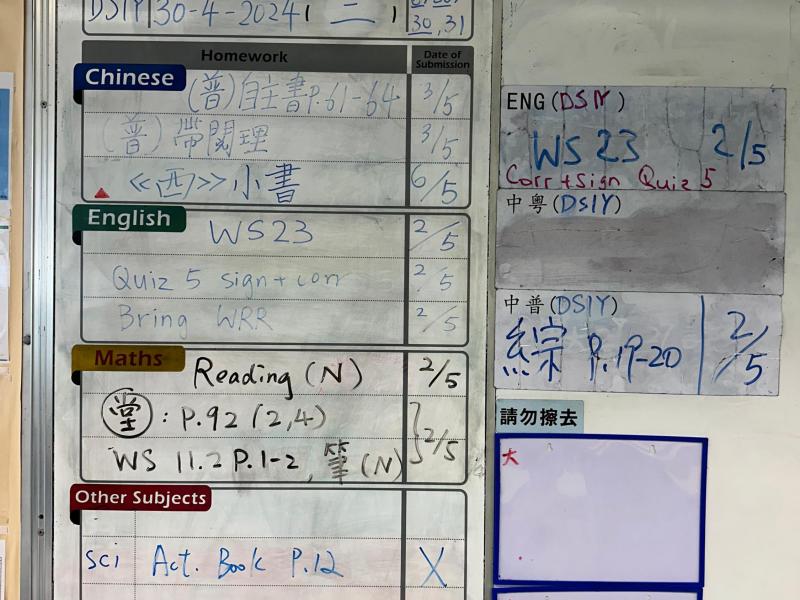 DS1Y 30-4-2024 ( 二 )
30, 31
Homework
Date of Submission
Chinese
(普)自主書P.61-64 3/5
(普) 帶閱理 3/5
《西》小書 6/5
English
WS23 2/5
Quiz 5 sign + corr 2/5
Bring WRR 2/5
Maths
Reading (N) 2/5
堂 : P.92 (2,4)
WS 11.2 P.1-2, 筆 (N) 2/5
Other Subjects
Sci Act. Book P.12 X
ENG (DS1Y)
WS 23 2/5
Corr + Sign Quiz 5
中粵 (DS1Y)
中普 (DS1Y)
綜 P.19-20 2/5
請勿擦去
大